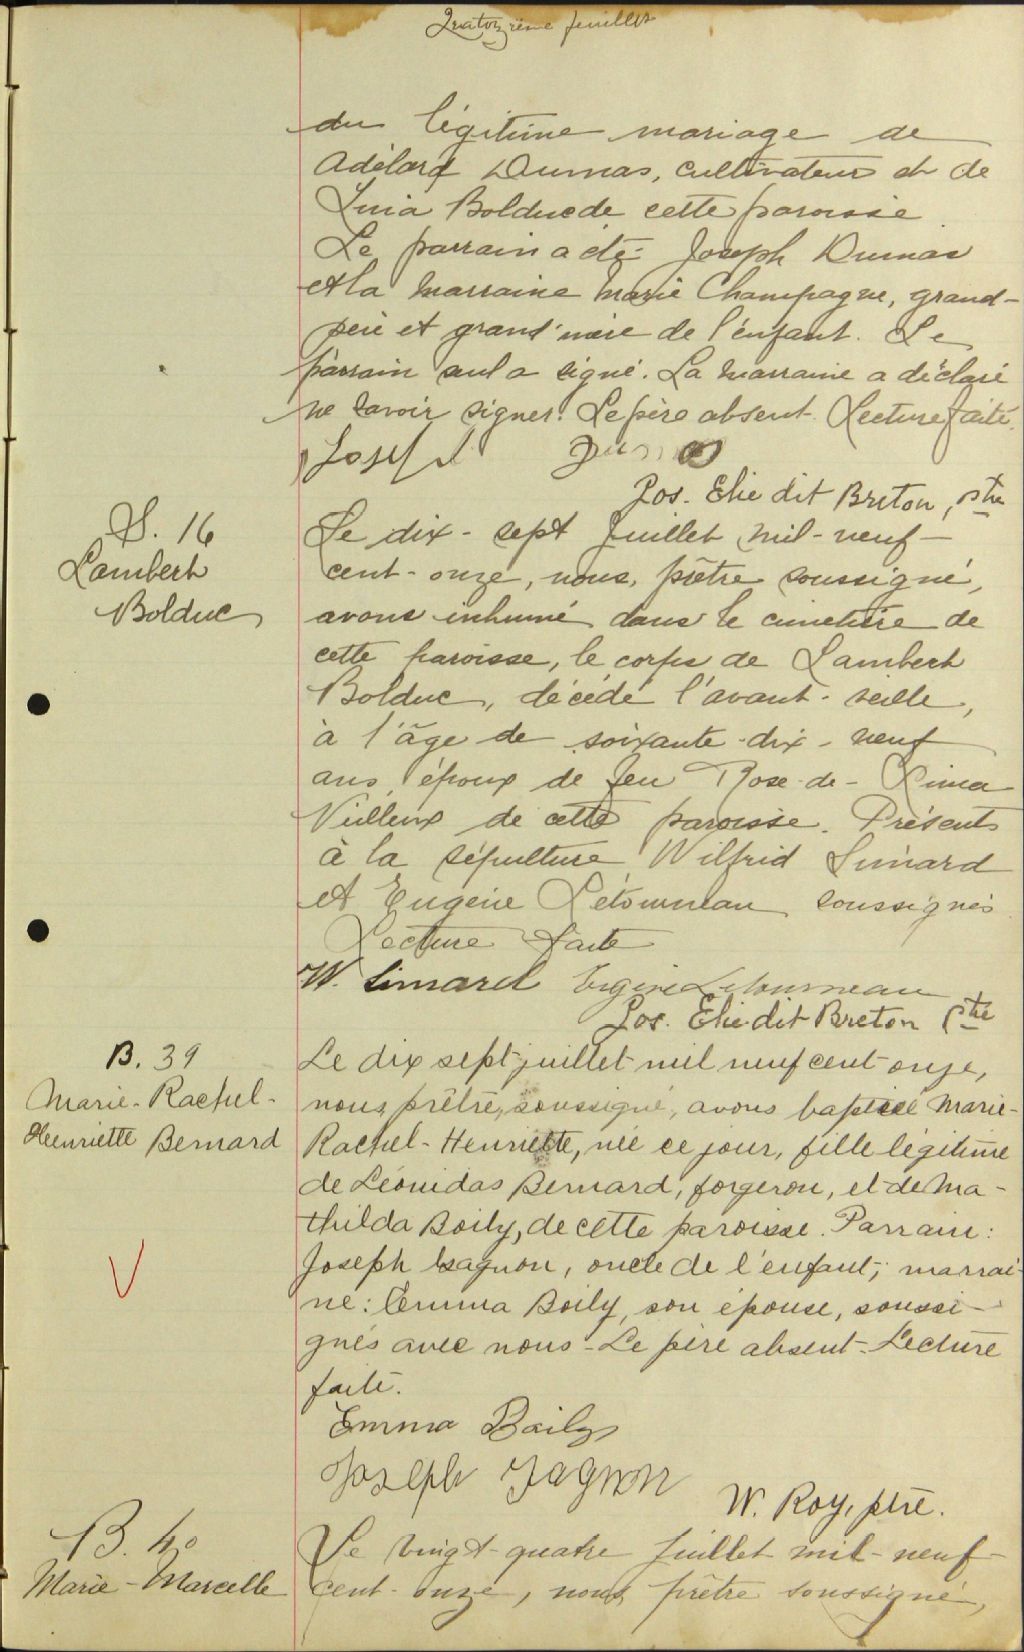 Quatorzième feuillet
du légitime mariage de
Adélard Dumas, cultivateur et de
Bolduc de cette paroisse
Le parrain a été Joseph Dumas
et la marraine Marie Champagne, grand-
père et grand'mère de l'enfant. Le
parrain seul a signé. La marraine a déclaré
ne savoir signer. Le père absent. Lecture faite.
Joseph Dumas
Jos. Elie dit Breton, ptre
S. 16
Lambert
Bolduc
Le dix-sept Juillet mil-neuf-
cent-onze, nous, prêtre soussigné,
avons inhumé dans le cimetière de
cette paroisse, le corps de Lambert
Bolduc, décédé l'avant-veille,
à l'âge de soixante-dix-neuf
ans, époux de feu Rose-de-Lima
Veilleux de cette paroisse. Présents
à la sépulture Wilfrid Simard
et Eugène Létourneau soussignés
Lecture faite
W. Simard Eugène Letourneau
Jos. Elie dit Breton ptre
B. 39
Marie-Rachel-
Henriette Bernard
Le dix sept juillet mil neuf cent onze,
nous, prêtre, soussigné, avons baptisé Marie-
Rachel-Henriette, née ce jour, fille légitime
de Léonidas Bernard, forgeron, et de Ma-
thilda Boily, de cette paroisse. Parrain:
Joseph Gagnon, oncle de l'enfant; marrai-
ne: Emma Boily, son épouse, soussi-
gnés avec nous - Le père absent - Lecture
faite.
Emma Boily
Joseph Gagnon
W. Roy, ptre.
B. 40
Marie-Marcelle
Le vingt-quatre Juillet mil-neuf-
cent-onze, nous, prêtre soussigné,